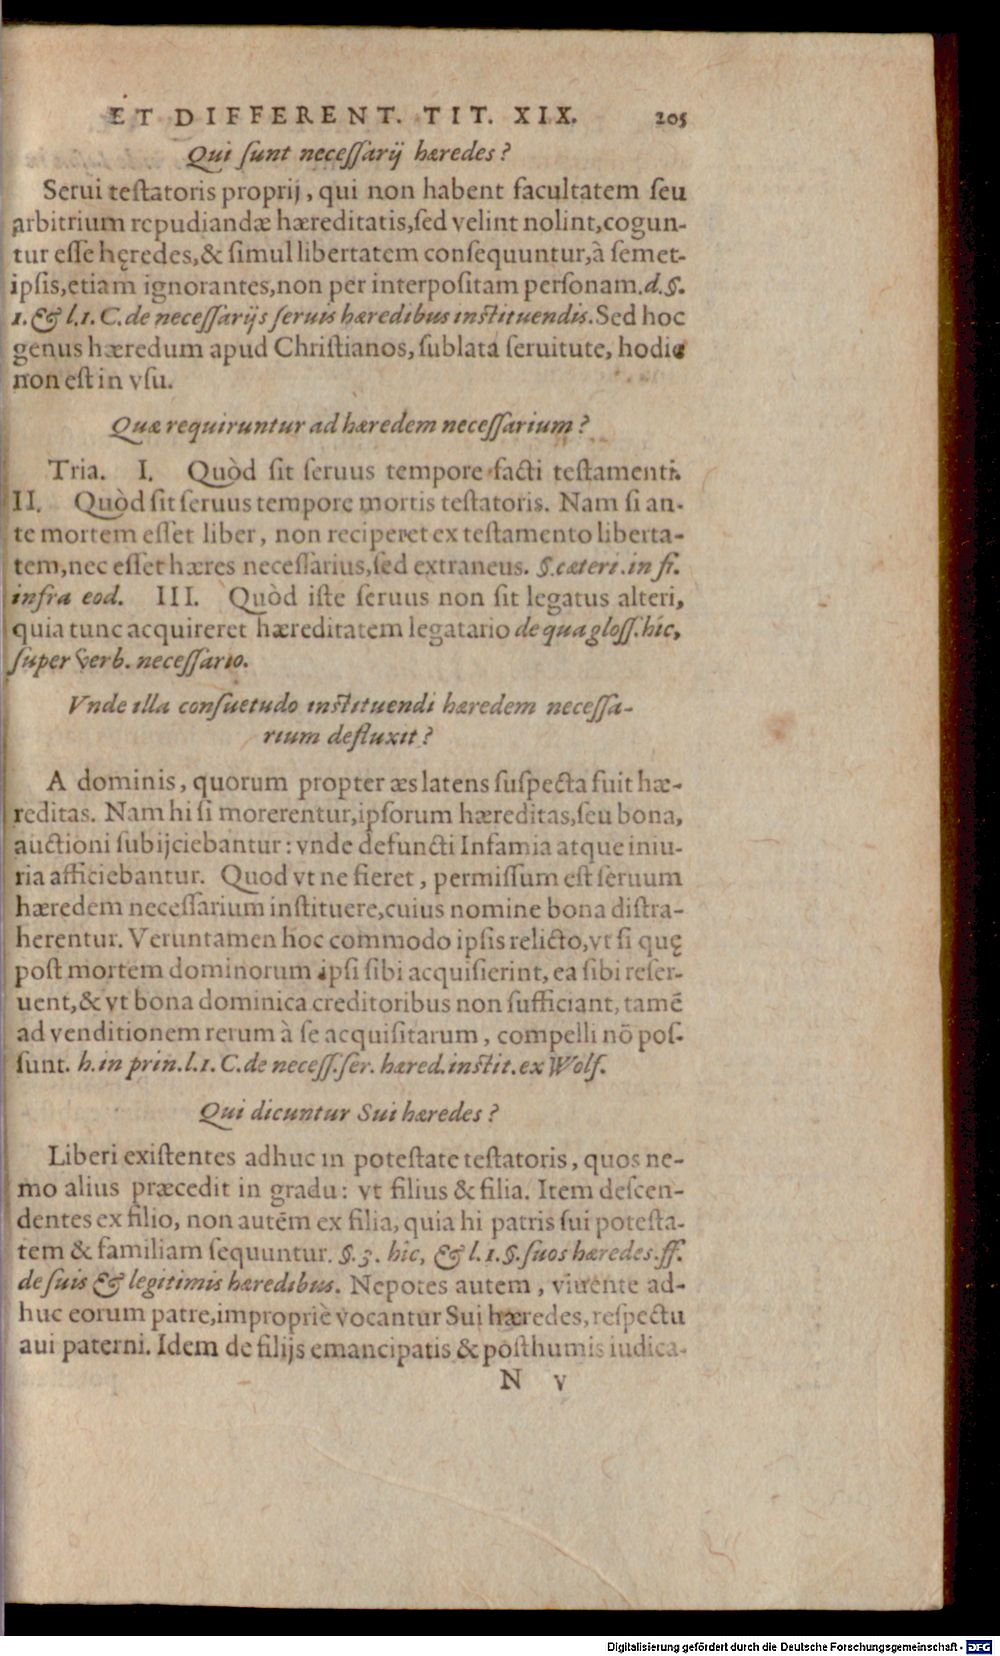 ET DIFFERENT. TIT. XIX. 205
Qui ſunt neceſſarij hæredes?
Serui teſtatoris proprij, qui non habent facultatem ſeu
arbitrium repudiandæ hæreditatis, ſed velint nolint, cogun-
tur eſſe hęredes, & ſimul libertatem conſequuntur, à ſemet-
ipſis, etiam ignorantes, non per interpoſitam perſonam. d. §.
1. & l. 1. C. de neceſſarijs ſeruis hæredibus inſtituendis. Sed hoc
genus hæredum apud Chriſtianos, ſublata ſeruitute, hodie
non eſt in vſu.
Quæ requiruntur ad hæredem neceſſarium?
Tria. I. Quòd ſit ſeruus tempore facti teſtamenti.
II. Quòd ſit ſeruus tempore mortis teſtatoris. Nam ſi an-
te mortem eſſet liber, non reciperet ex teſtamento liberta-
tem, nec eſſet hæres neceſſarius, ſed extraneus. §. cæteri. in fi.
infra eod. III. Quòd iſte ſeruus non ſit legatus alteri,
quia tunc acquireret hæreditatem legatario de qua gloſſ. hic,
ſuper verb. neceſſario.
Vnde illa conſuetudo inſtituendi hæredem neceſſa-
rium defluxit?
A dominis, quorum propter æs latens ſuſpecta fuit hæ-
reditas. Nam hi ſi morerentur, ipſorum hæreditas, ſeu bona,
auctioni ſubijciebantur: vnde defuncti Infamia atque iniu-
ria afficiebantur. Quod vt ne fieret, permiſſum eſt ſeruum
hæredem neceſſarium inſtituere, cuius nomine bona diſtra-
herentur. Veruntamen hoc commodo ipſis relicto, vt ſi quę
poſt mortem dominorum ipſi ſibi acquiſierint, ea ſibi reſer-
uent, & vt bona dominica creditoribus non ſufficiant, tamē
ad venditionem rerum à ſe acquiſitarum, compelli nō poſ-
ſunt. h. in prin. l. 1. C. de neceſſ. ſer. hæred. inſtit. ex Wolf.
Qui dicuntur Sui hæredes?
Liberi exiſtentes adhuc in poteſtate teſtatoris, quos ne-
mo alius præcedit in gradu: vt filius & filia. Item deſcen-
dentes ex filio, non autēm ex filia, quia hi patris ſui poteſta-
tem & familiam ſequuntur. §. 3. hic, & l. 1. §. ſuos hæredes. ff.
de ſuis & legitimis hæredibus. Nepotes autem, viuente ad-
huc eorum patre, impropriè vocantur Sui hæredes, reſpectu
aui paterni. Idem de filijs emancipatis & poſthumis iudica-
N v
Digitalisierung gefördert durch die Deutsche Forschungsgemeinschaft - DFG